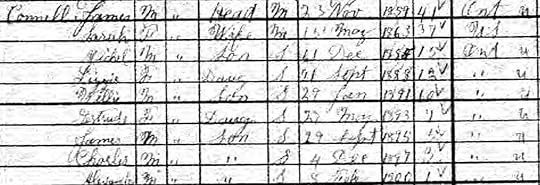 Connell James M " Head M 23 Nov 1859 41 Ont u
Sarah F " Wife M 15 May 1863 37 U.S u
Michel M " Son S 21 Dec 15 Ont u
Lizzie F " Daug S 21 Sept 1888 12 " u
Willie M " Son S 29 Jan 1891 10 " u
Gertrude F " Daug S 27 May 1893 7 " u
James M " Son S 29 Sept 1895 " u
Charles M " " S 4 Dec 1897 3 " u
Alexander M " " S 8 Feb 1900 1 " u